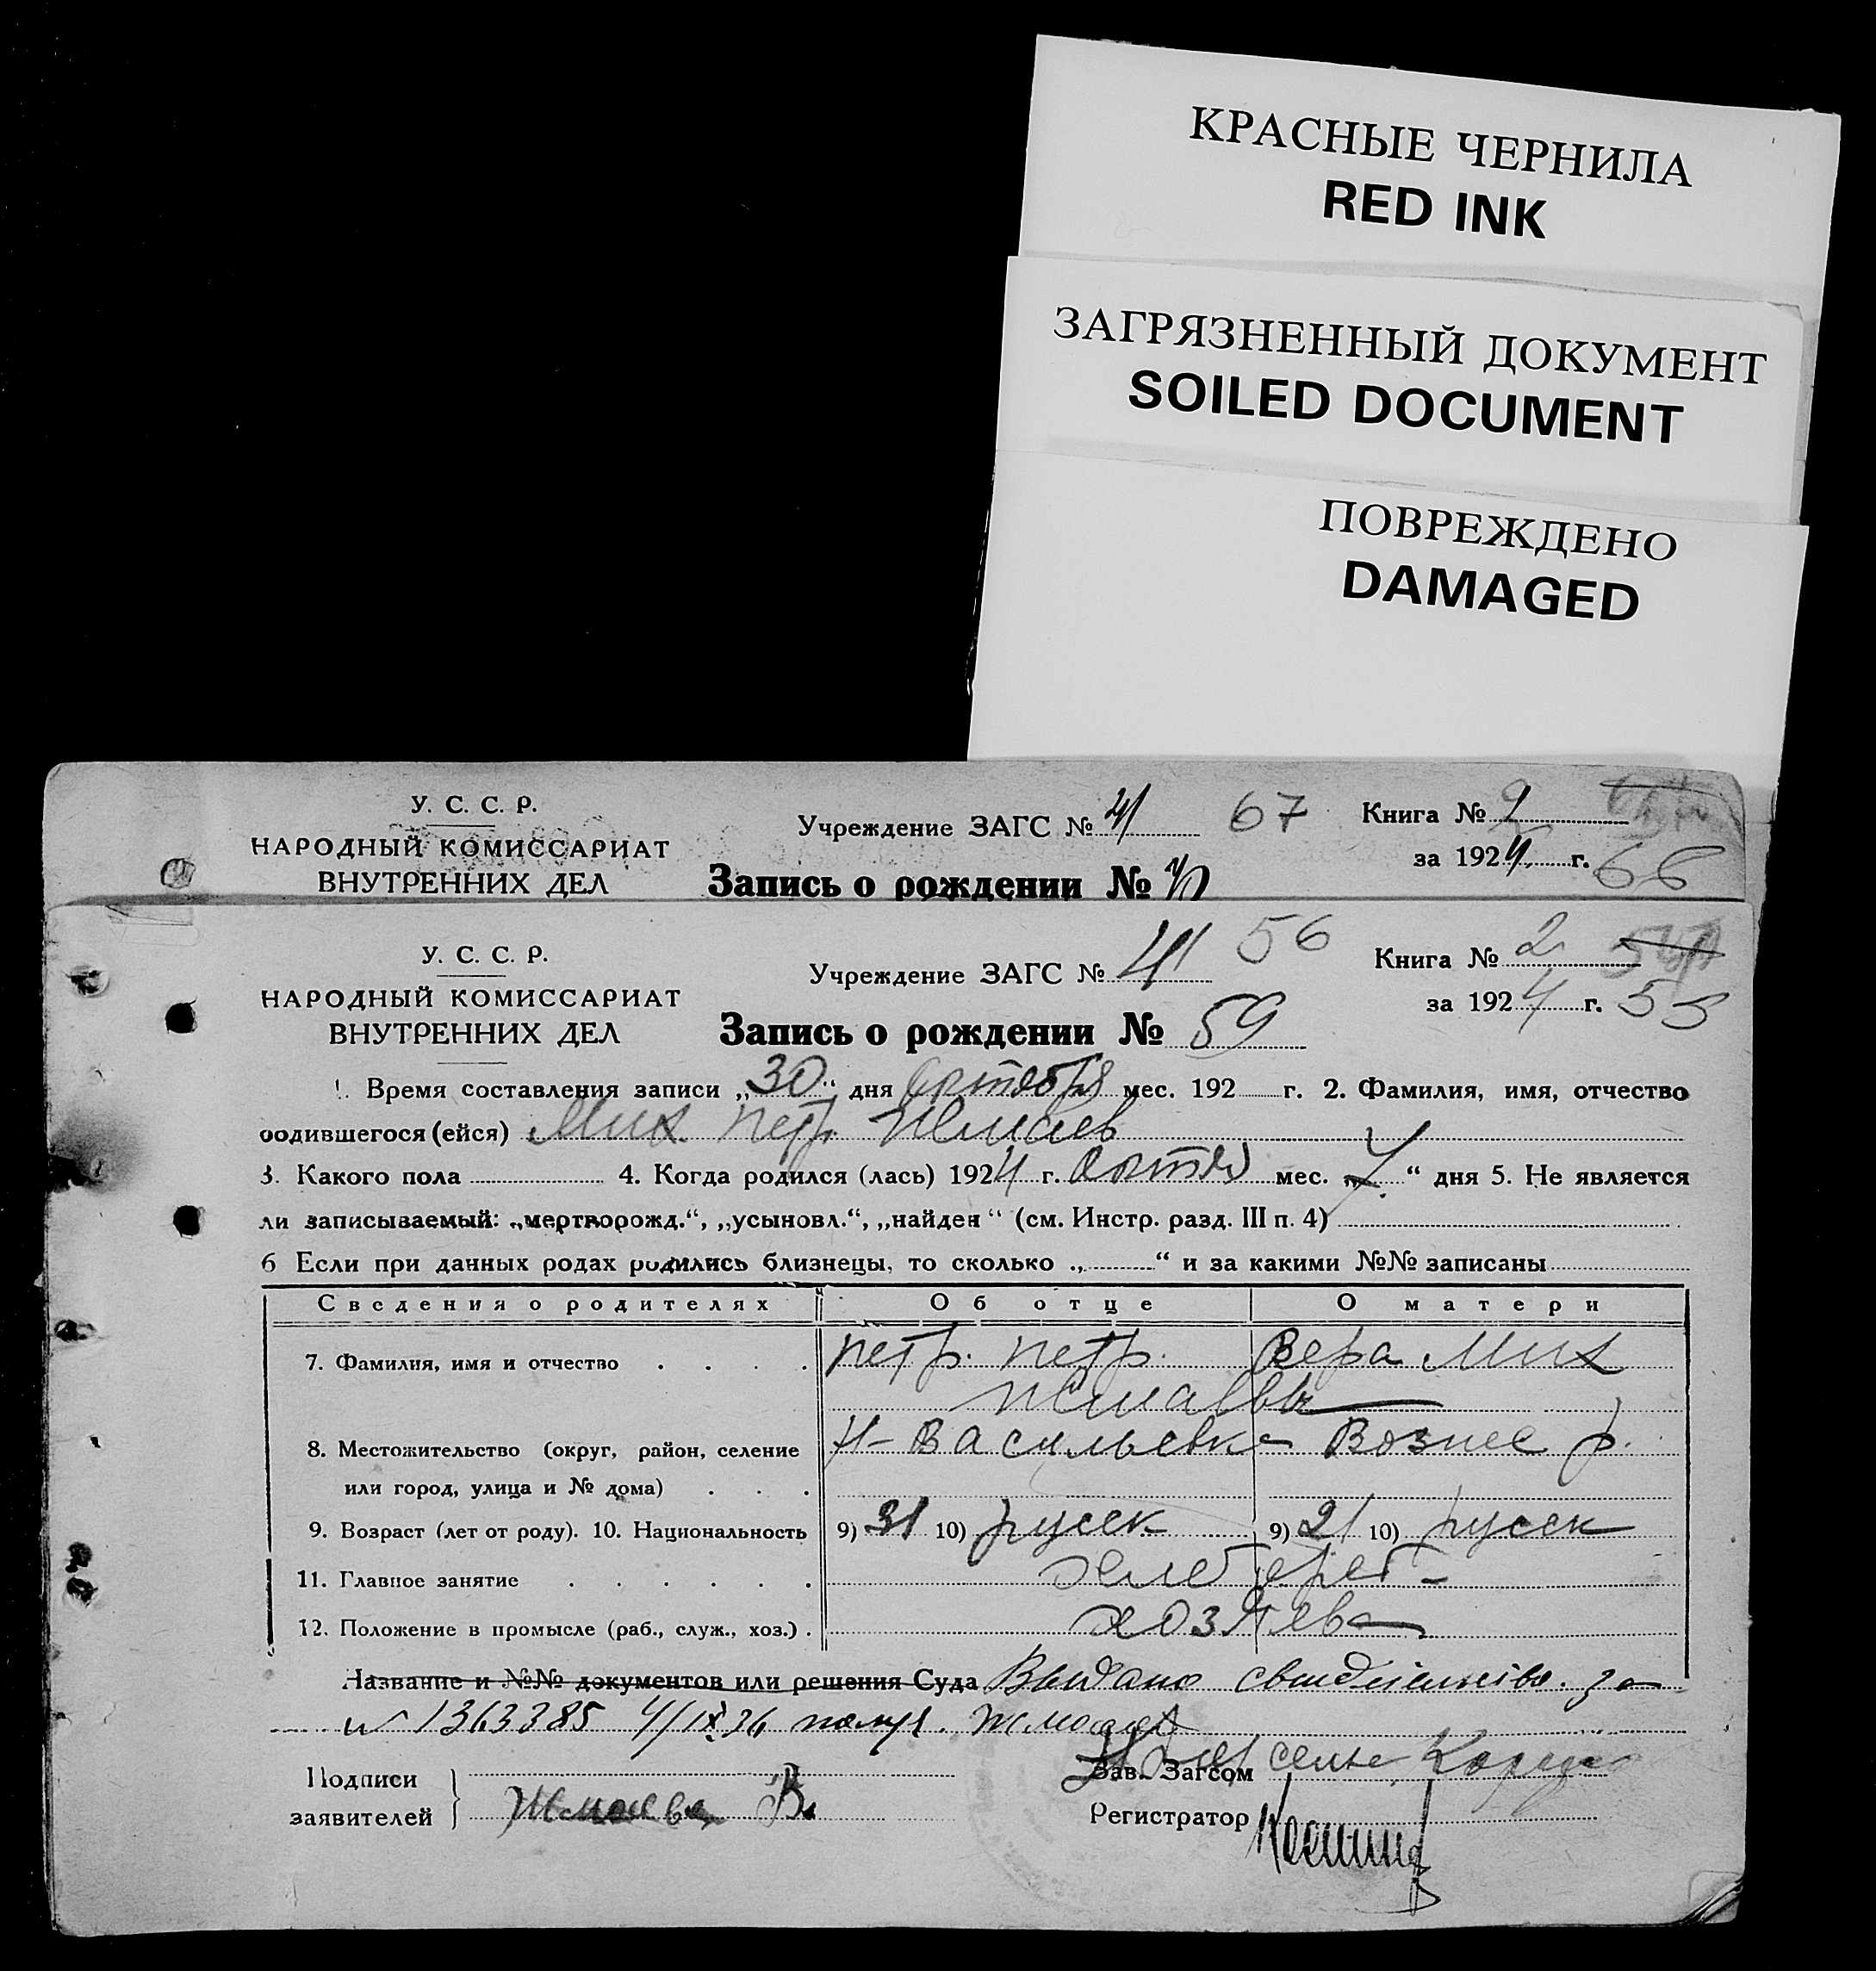 КРАСНЫЕ ЧЕРНИЛА
RED INK
ЗАГРЯЗНЕННЫЙ ДОКУМЕНТ
SOILED DOCUMENT
ПОВРЕЖДЕНО
DAMAGED
У. С. С. Р.
НАРОДНЫЙ КОМИССАРИАТ
ВНУТРЕННИХ ДЕЛ
Учреждение ЗАГС № 41 67
Книга № 2
за 1924 г. 66
Запись о рождении №
У. С. С. Р.
НАРОДНЫЙ КОМИССАРИАТ
ВНУТРЕННИХ ДЕЛ
Учреждение ЗАГС № 41 56
Книга № 2
за 1924 г. 55
Запись о рождении № 59
1. Время составления записи „30“ дня октября мес. 192 г. 2. Фамилия, имя, отчество
родившегося (ейся) Мих. Петр. Жмаев
3. Какого пола 4. Когда родился (лась) 1924 г. октяб мес. „ “ дня 5. Не является
ли записываемый: „мертворожд.“, „усыновл.“, „найден“ (см. Инстр. разд. III п. 4)
6 Если при данных родах родились близнецы, то сколько „ “ и за какими №№ записаны
Сведения о родителях Об отце О матери
7. Фамилия, имя и отчество Петр. Петр. Вера Мих
Жмаевы
8. Местожительство (округ, район, селение Н-Васильевка Вознес р.
или город, улица и № дома)
9. Возраст (лет от роду). 10. Национальность 9) 31 10) русск 9) 21 10) русск
11. Главное занятие
12. Положение в промысле (раб., служ., хоз.) хозяева
Название и №№ документов или решения Суда Выдано свидетельство за
№ 1363385 4/IX 36 получ.
Подписи
заявителей Жмаева В.
Зав. Загсом
Регистратор